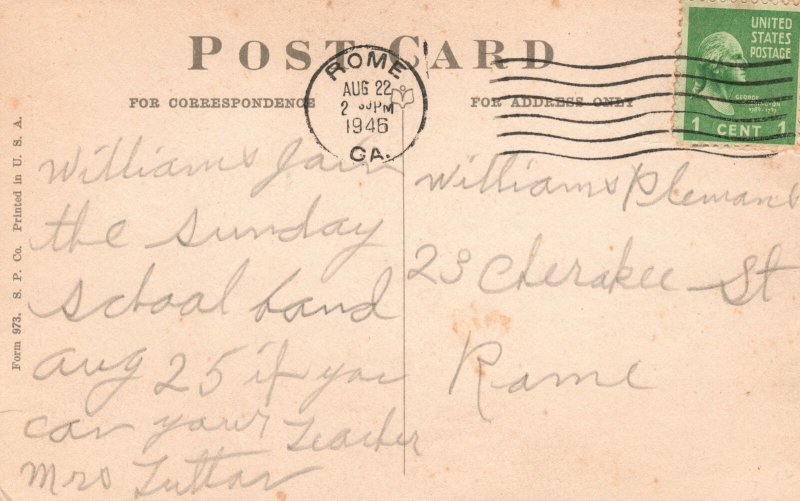 POST CARD
FOR CORRESPONDENCE
FOR ADDRESS ONLY
ROME
AUG 22
2 PM
1946
GA.
UNITED
STATES
POSTAGE
GEORGE
WASHINGTON
1 CENT 1
Form 973. S. P. Co. Printed in U. S. A.
Williams Join
the Sunday
School band
Aug 25 if you
can your Teacher
Mrs
Williams
23 Cherakee St
Rome